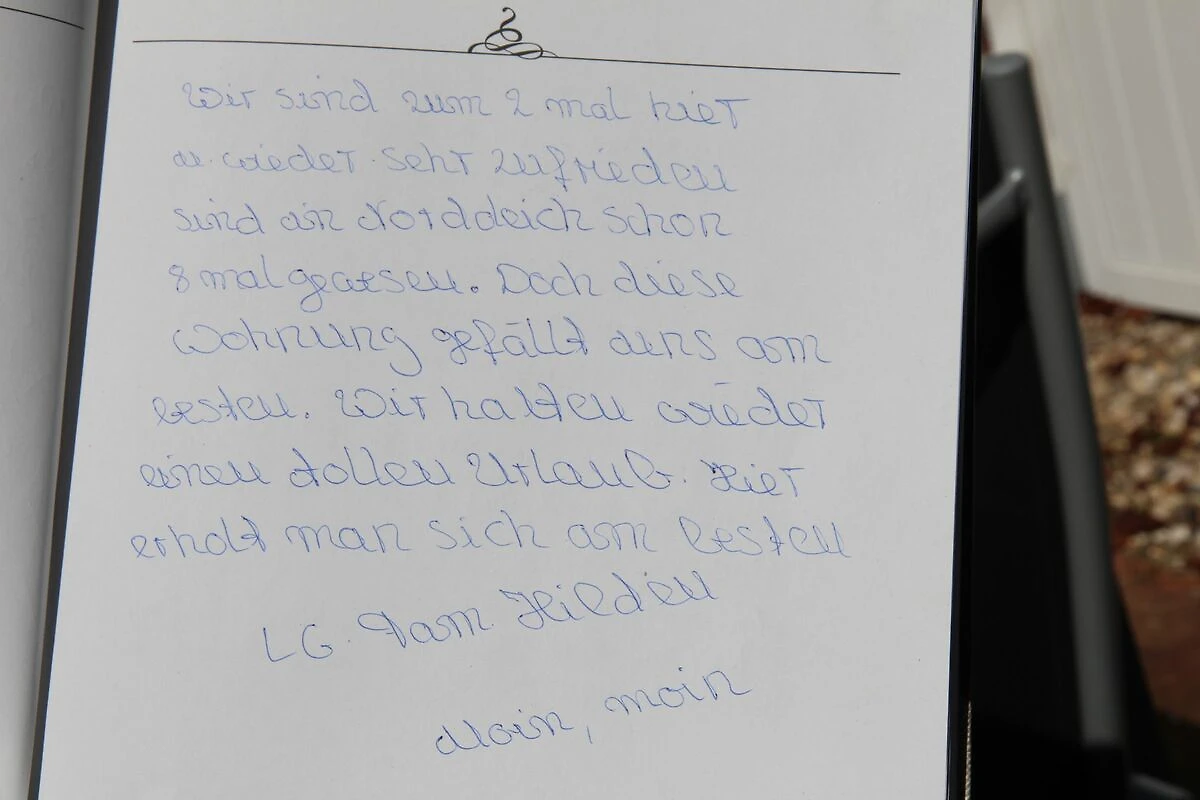 Wir sind zum 2 mal hier
u. wieder sehr zufrieden
sind in Norddeich schon
8 mal gewesen. Doch diese
Wohnung gefällt uns am
besten. Wir hatten wieder
einen tollen Urlaub. Hier
erholt man sich am besten
LG. Fam.
Moin, moin